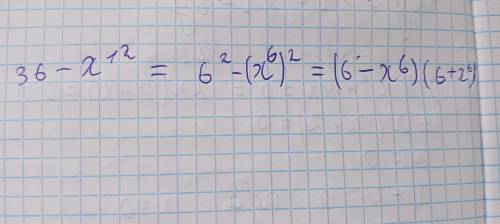 36 - x¹² = 6² - (x⁶)² = (6 - x⁶)(6 + x⁶)